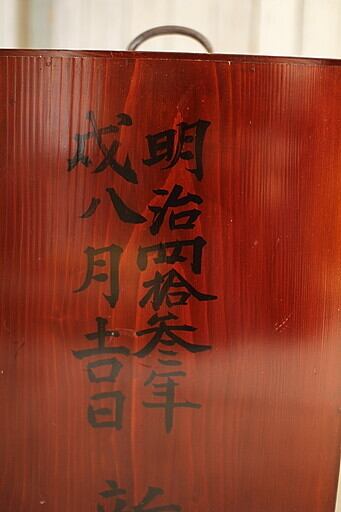 明治四拾叁年
戌八月吉日
新